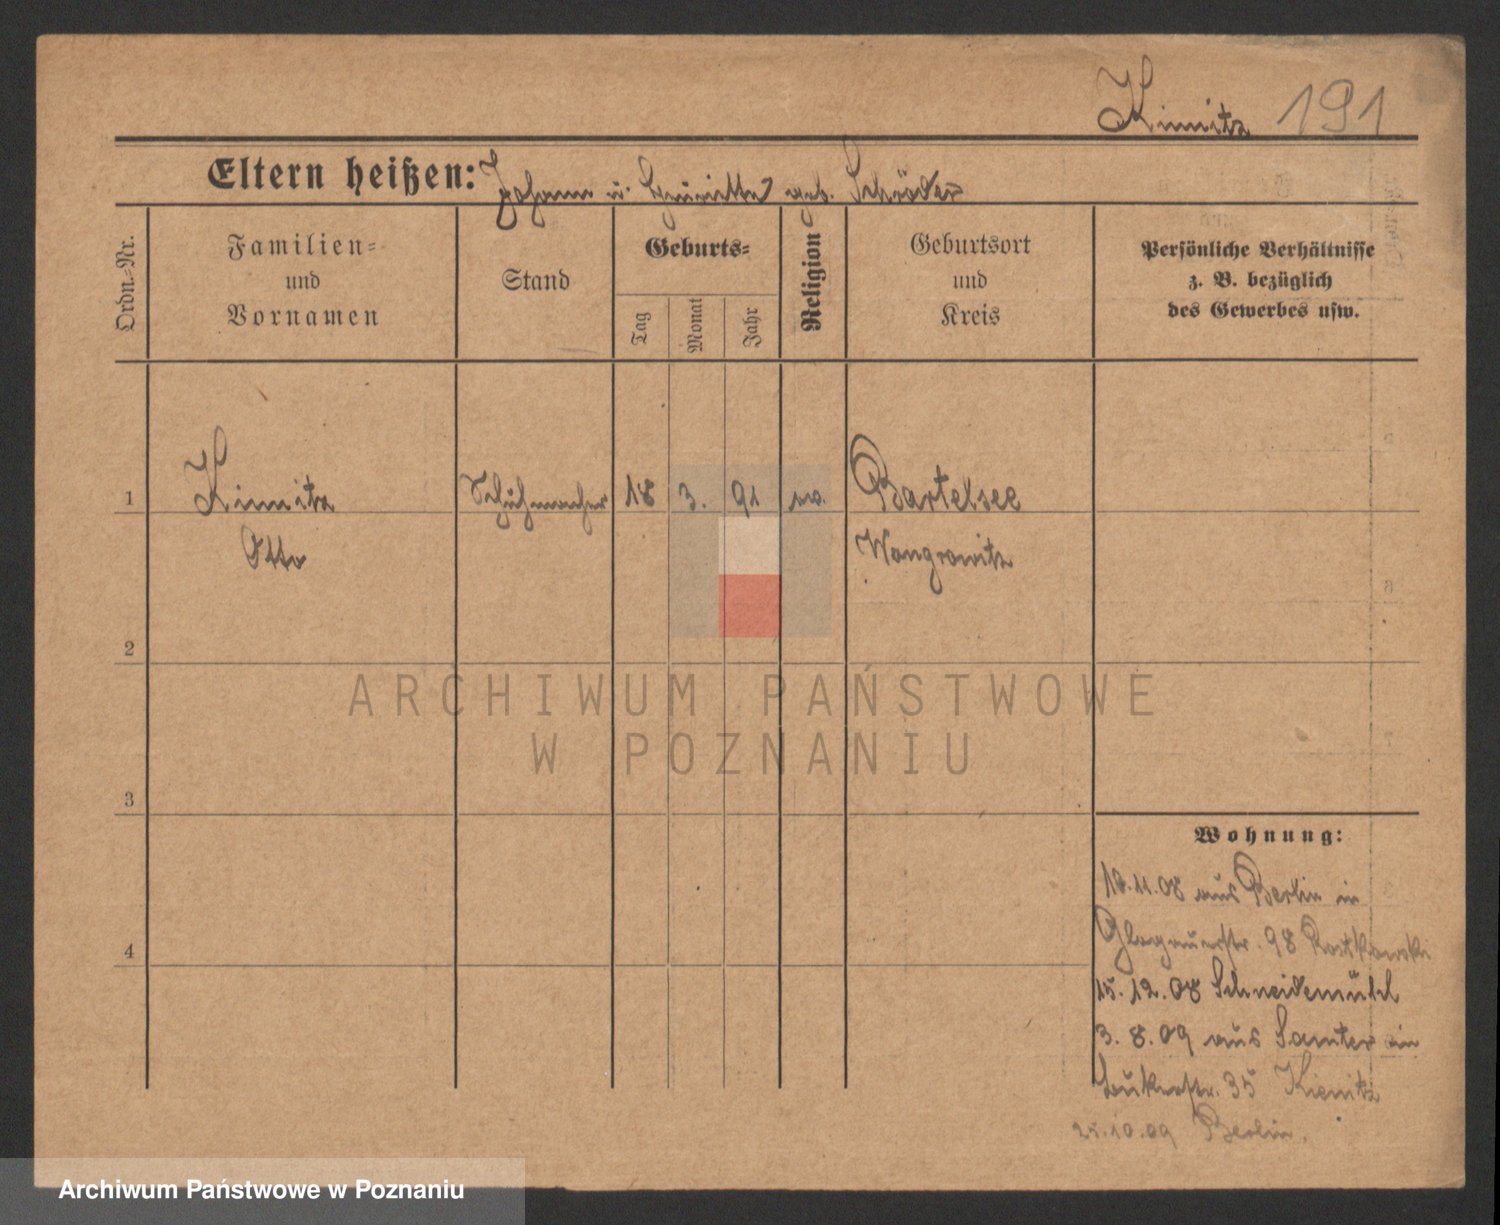 Kinnitz 191
Eltern heißen: Johann u. Henriette geb. Schröder
Ordn.-Nr.
Familien-
und
Vornamen
Stand
Geburts-
Tag
Monat
Jahr
Religion
Geburtsort
und
Kreis
Persönliche Verhältnisse
z. B. bezüglich
des Gewerbes usw.
1 Kinnitz Schuhmacher 18 3. 91 ev. Bartelsee
Otto Wongrowitz
2
ARCHIWUM PAŃSTWOWE
W POZNANIU
3
Wohnung:
10.11.08 aus Berlin in
Glogauerstr. 98 Rostkowski
4
15.12.08 Schneidemühl
3.8.09 aus Samter in
35 Kienitz
25.10.09 Berlin.
Archiwum Państwowe w Poznaniu